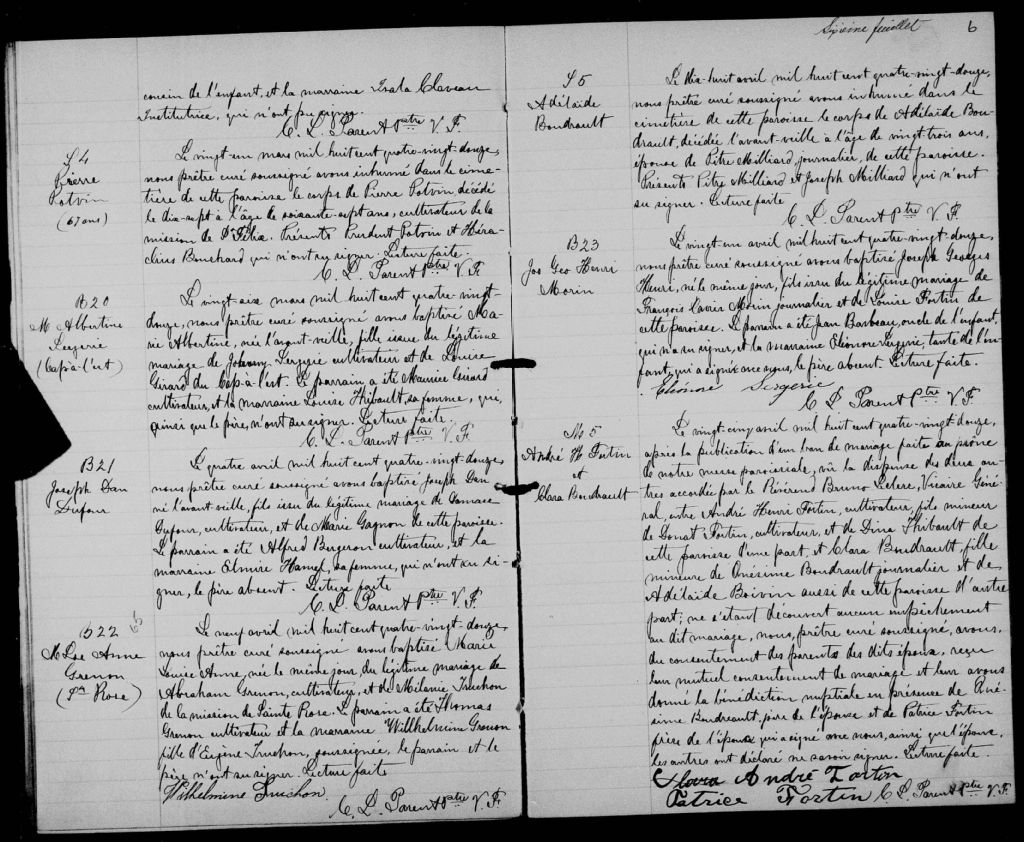 cousin de l'enfant, et la marraine Isala Claveau
Institutrice, qui n'ont pu signer.
C. L. Parent Ptre V. F.
S 4
Pierre
Potvin
(67 ans)
Le vingt-un mars mil huit cent quatre-vingt-douze,
nous prêtre curé soussigné avons inhumé dans le cime-
tière de cette paroisse le corps de Pierre Potvin décédé
le dix-sept à l'âge de soixante-sept ans, cultivateur de la
mission de St Félix. Présents Prudent Potvin et Héra-
clius Bouchard qui n'ont su signer. Lecture faite.
C. L. Parent Ptre V. F.
B 20
M Albertine
Sergerie
(Cap-à-l'est)
Le vingt-six mars mil huit cent quatre-vingt-
douze, nous prêtre curé soussigné avons baptisé Ma-
rie Albertine, née l'avant-veille, fille issue du légitime
mariage de Johnny Sergerie cultivateur et de Louise
Girard du Cap-à-l'est. Le parrain a été Maurice Girard
cultivateur, et la marraine Louise Thibault, sa femme, qui,
ainsi que le père, n'ont su signer. Lecture faite.
C. L. Parent Ptre V. F.
B 21
Joseph Dan
Dufour
Le quatre avril mil huit cent quatre-vingt-douze,
nous prêtre curé soussigné avons baptisé Joseph Dan
né l'avant-veille, fils issu du légitime mariage de Damase
Dufour, cultivateur, et de Marie Gagnon de cette paroisse.
Le parrain a été Alfred Bergeron cultivateur, et la
marraine Elmire Hamel, sa femme, qui n'ont su si-
gner, le père absent. Lecture faite
C. L. Parent Ptre V. F.
B 22
M Lse Anne
Grenon
(Ste Rose)
Le neuf avril mil huit cent quatre-vingt-douze,
nous prêtre curé soussigné avons baptisé Marie
Louise Anne, née le même jour, du légitime mariage de
Abraham Grenon, cultivateur, et de Mélanie Truchon
de la mission de Sainte Rose. Le parrain a été Thomas
Grenon cultivateur et la marraine Willhelmine Grenon
fille d'Eugène Truchon, soussignée, le parrain et le
père n'ont su signer. Lecture faite
Wilhelmine Truchon.
C. L. Parent Ptre V. F.
Sixième feuillet 6
S 5
Adélaïde
Boudrault
Le dix-huit avril mil huit cent quatre-vingt-douze,
nous prêtre curé soussigné avons inhumé dans le
cimetière de cette paroisse le corps de Adélaïde Bou-
drault, décédée l'avant-veille à l'âge de vingt trois ans,
épouse de Pitre Milliard, journalier, de cette paroisse.
Présents Pitre Milliard et Joseph Milliard qui n'ont
su signer. Lecture faite
C. L. Parent Ptre V. F.
B 23
Jos Geo Henri
Morin
Le vingt-un avril mil huit cent quatre-vingt-douze,
nous prêtre curé soussigné avons baptisé Joseph Georges
Henri, né le même jour, fils issu du légitime mariage de
François Xavier Morin journalier et de Louise Fortin de
cette paroisse. Le parrain a été Jean Barbeau, oncle de l'enfant,
qui n'a su signer, et la marraine Eléonore Sergerie, tante de l'en-
fant, qui a signé avec nous, le père absent. Lecture faite.
Eléonore Sergerie
C. L. Parent Ptre V. F.
M 5
André H. Fortin
et
Clara Boudrault
Le vingt-cinq avril mil huit cent quatre-vingt-douze,
après la publication d'un ban de mariage faite au prône
de notre messe paroissiale, vû la dispense des deux au-
tres accordée par le Révérend Bruno Leclerc, Vicaire Géné-
ral, entre André Henri Fortin, cultivateur, fils mineur
de Donat Fortin, cultivateur, et de Dina Thibault de
cette paroisse d'une part, et Clara Boudrault, fille
mineure de Onésime Boudrault journalier et de
Adélaïde Boivin aussi de cette paroisse d'autre
part; ne s'étant découvert aucun empêchement
au dit mariage, nous, prêtre curé soussigné, avons,
du consentement des parents des dits époux, reçu
leur mutuel consentement de mariage et leur avons
donné la bénédiction nuptiale en présence de Oné-
sime Boudreault, père de l'épouse et de Patrice Fortin
frère de l'époux qui a signé avec nous, ainsi que l'épouse.
Les autres ont déclaré ne savoir signer. Lecture faite.
Clara André Fortin
Patrice Fortin C. L. Parent Ptre V. F.